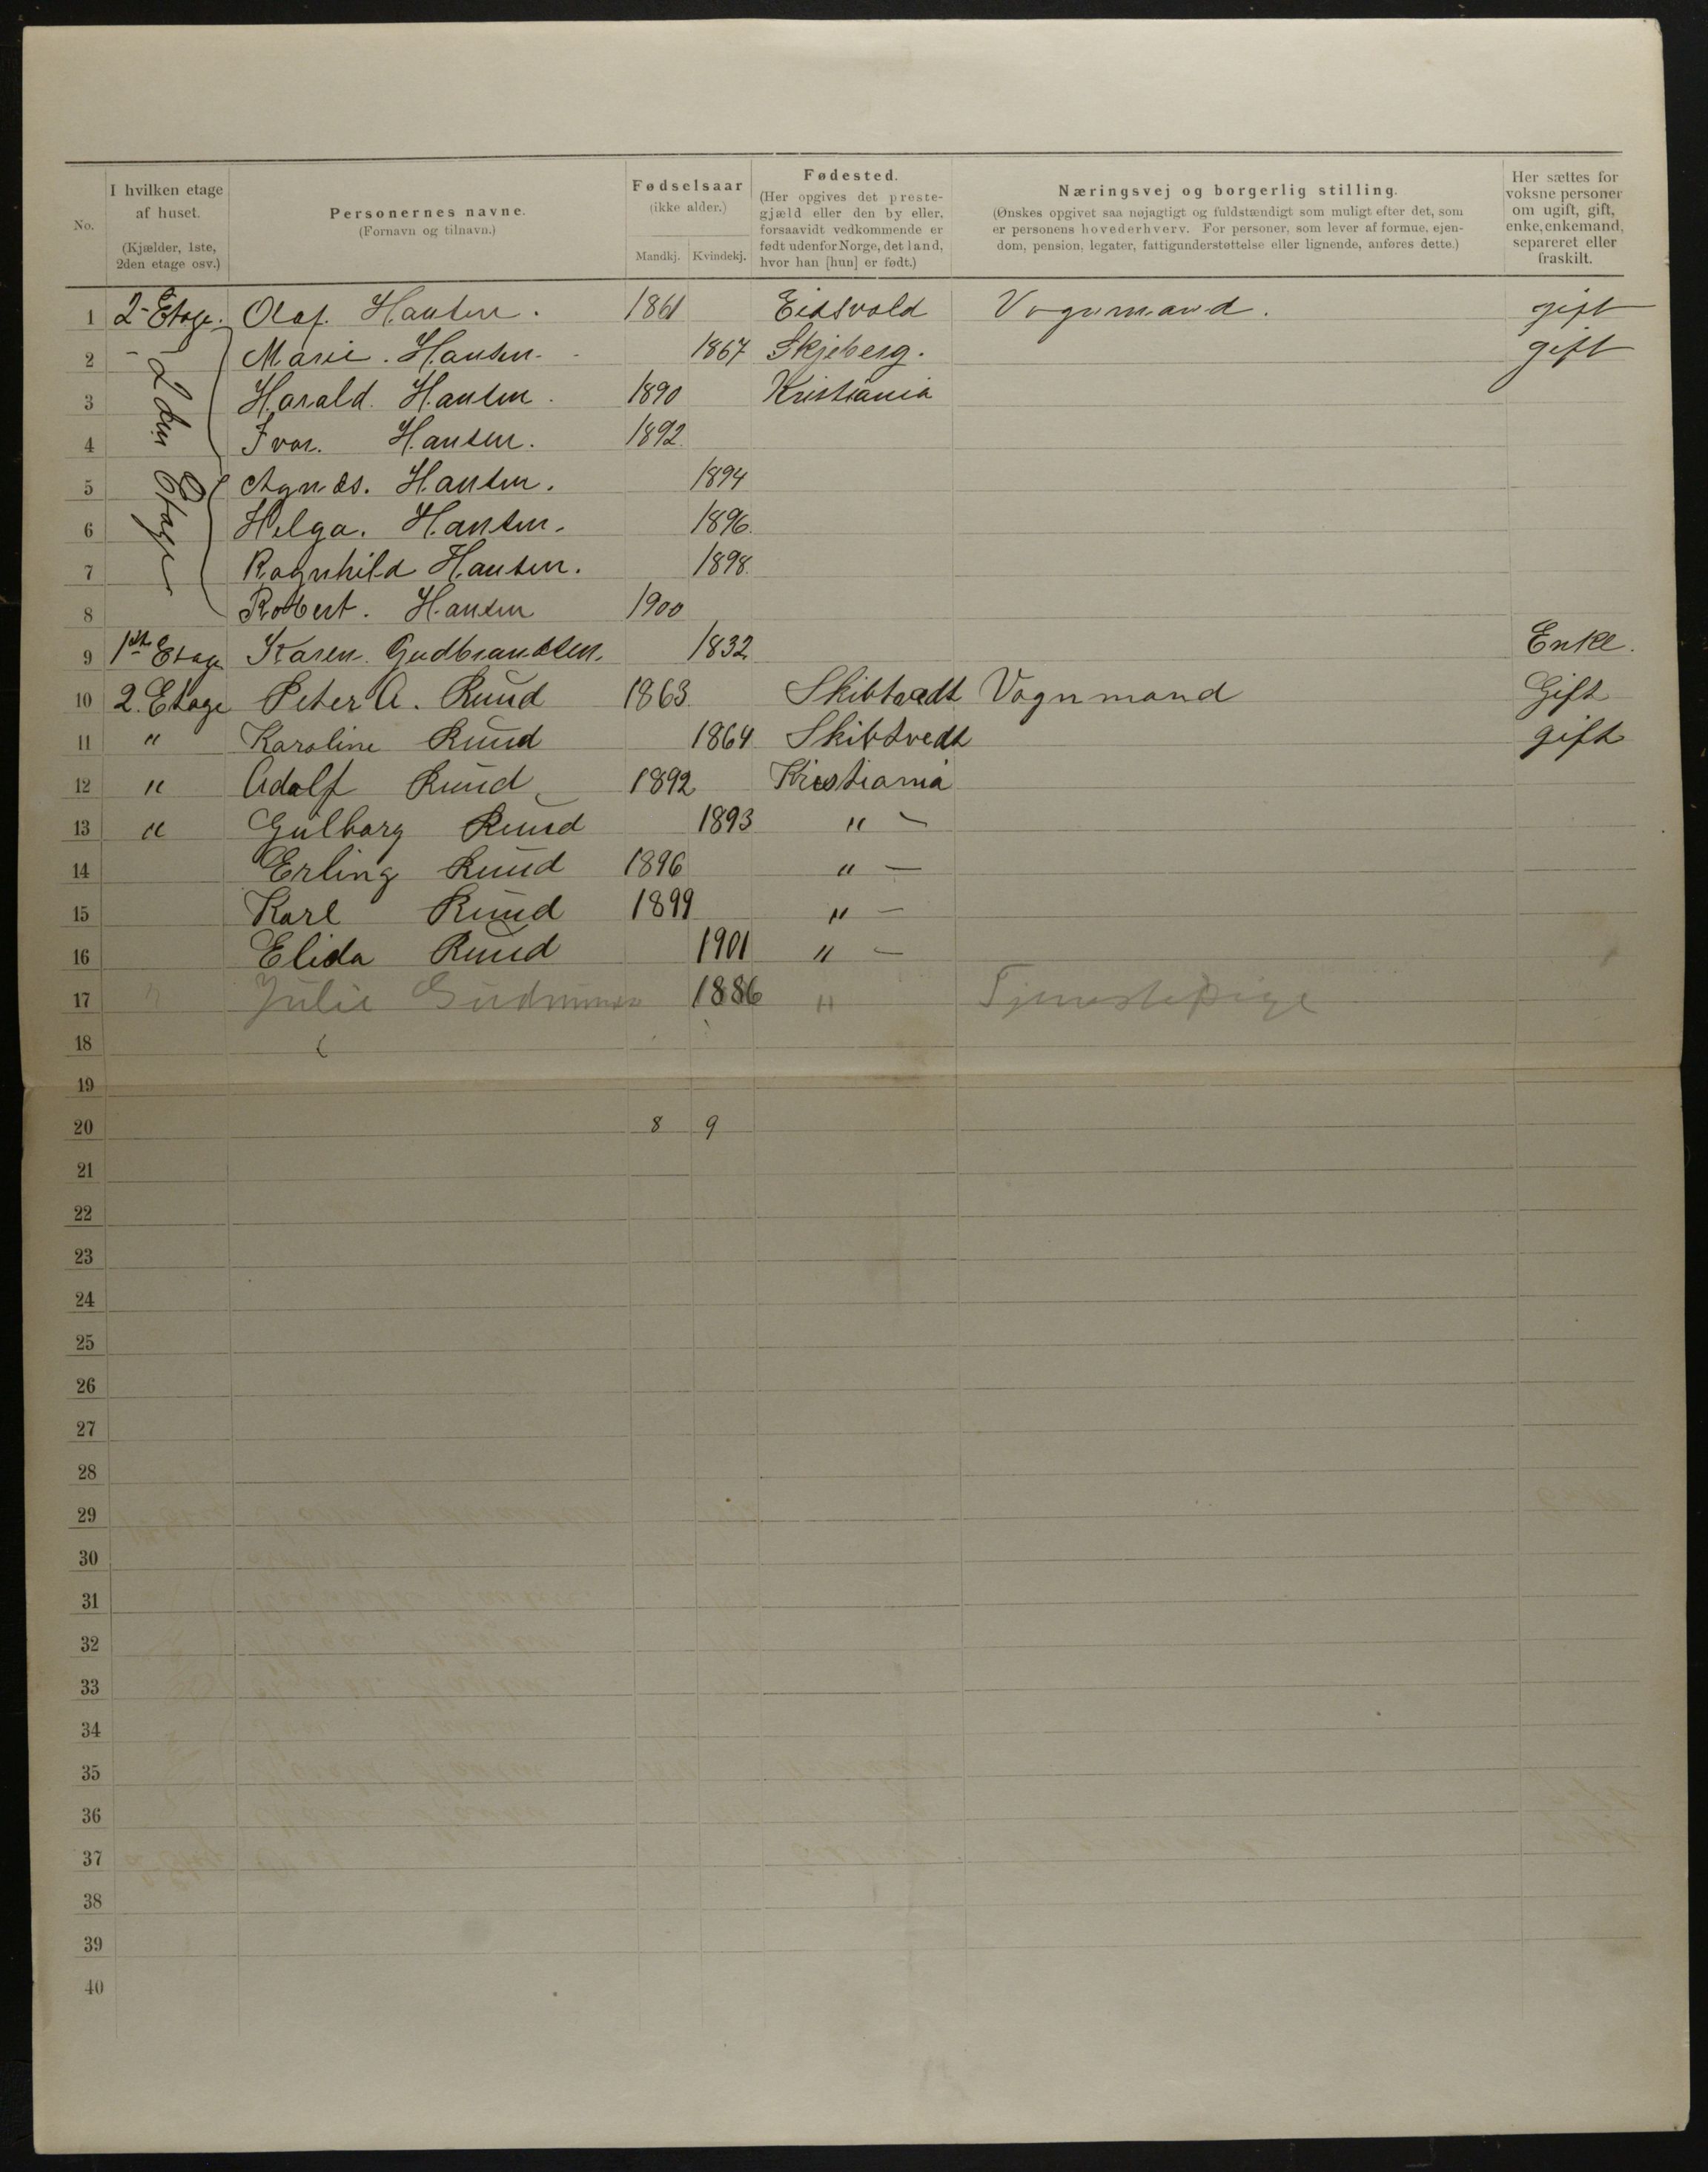 No.
I hvilken etage af huset.
(Kjælder, 1ste, 2den etage osv.)
Personernes navne.
(Fornavn og tilnavn.)
Fødselsaar
(ikke alder.)
Mandkj. Kvindekj.
Fødested.
(Her opgives det prestegjæld eller den by eller, forsaavidt vedkommende er født udenfor Norge, det land, hvor han [hun] er født.)
Næringsvej og borgerlig stilling.
(Ønskes opgivet saa nøjagtigt og fuldstændigt som muligt efter det, som er personens hovederhverv. For personer, som lever af formue, ejendom, pension, legater, fattigunderstøttelse eller lignende, anføres dette.)
Her sættes for voksne personer om ugift, gift, enke, enkemand, separeret eller fraskilt.
1 2- Etage. Olaf. Hansen. 1861 Eidsvold Vognmand. gift
2 Marie. Hansen. 1867 Skjeberg. gift
2den Etage
3 Harald. Hansen. 1890 Kristiania
4 Ivar. Hansen. 1892.
5 Agnes. Hansen. 1894
6 Helga. Hansen. 1896.
7 Ragnhild Hansen. 1898.
8 Robert. Hansen 1900
9 1ste Etage Karen. Gudbrandsen. 1832 Enke.
10 2. Etage Peter A. Ruud 1863. Skibtvedt Vognmand Gift
11 " Karoline Ruud 1864 Skibtvedt gift
12 " Adolf Ruud 1892 Kristiania
13 " Gulborg Ruud 1893 " -
14 Erling Ruud 1896 " —
15 Karl Ruud 1899 " —
16 Elida Ruud 1901 " —
17 " Julie 1886 " Tjenestepige
18
19
20 8 9
21
22
23
24
25
26
27
28
29
30
31
32
33
34
35
36
37
38
39
40